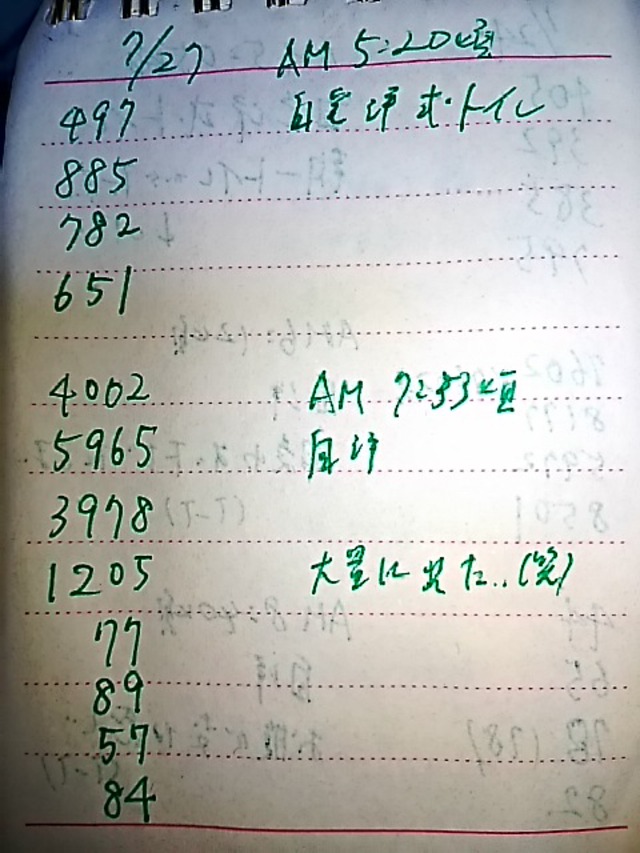 7/27 AM 5:20頃
497 自宅 洋式・トイレ
885
782
651
4002 AM 7:53頃
5965 自
3978
1205 大量に出た..(笑)
77
89
57
84